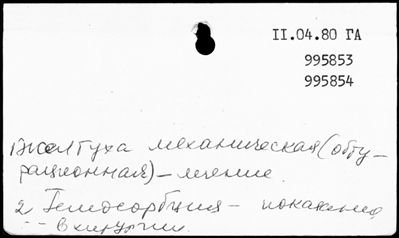 II.04.80 ГА
995853
995854
1) Желтуха механическая (обту-
рационная) – лечение.
2 Гемосорбция – показания
-- в хирургии.